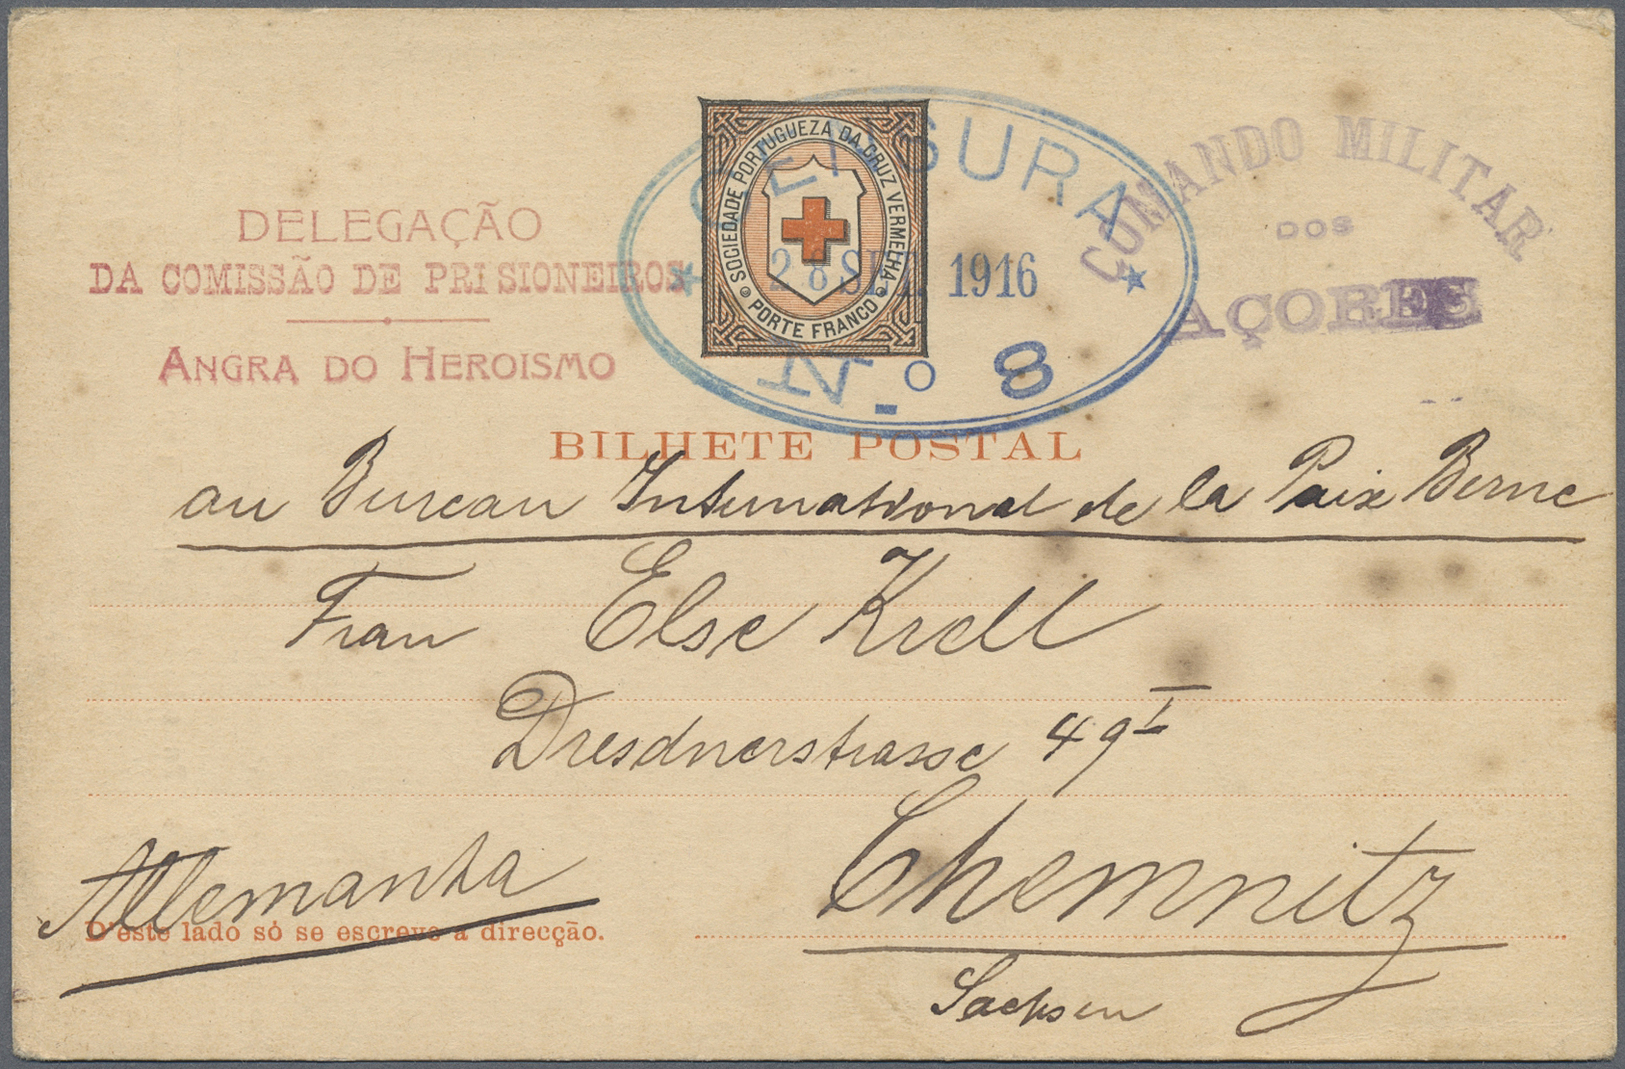 SOCIEDADE PORTUGUEZA DA CRUZ VERMELHA
PORTE FRANCO
CENSURA
28 SET. 1916
N.º 8
COMANDO MILITAR
DOS
AÇORES
DELEGAÇÃO
DA COMISSÃO DE PRISIONEIROS
ANGRA DO HEROISMO
BILHETE POSTAL
au Bureau International de la Paix Berne
Frau Else Krell
Dresdnerstrasse 49 I
Chemnitz
Sachsen
Allemanha
D'este lado só se escreve a direcção.